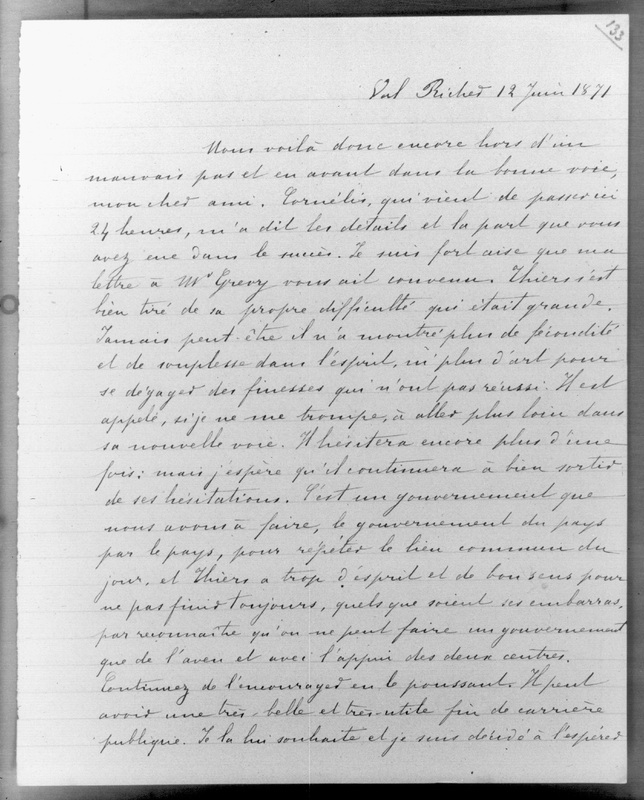 133
Val Richer 12 Juin 1871
Nous voilà donc encore hors d'un
mauvais pas et en avant dans la bonne voie,
mon cher ami. Cornélis, qui vient de passer ici
24 heures, m'a dit les détails et la part que vous
avez eue dans le succès. Je suis fort aise que ma
lettre à Mr Grevy vous ait convenu. Thiers s'est
bien tiré de sa propre difficulté qui était grande.
Jamais peut-être il n'a montré plus de fécondité
et de souplesse dans l'esprit, ni plus d'art pour
se dégager des finesses qui n'ont pas réussi. Il est
appelé, si je ne me trompe, à aller plus loin dans
sa nouvelle voie. Il hésitera encore plus d'une
fois; mais j'espère qu'il continuera à bien sortir
de ses hésitations. C'est un gouvernement que
nous avons à faire, le gouvernement du pays
par le pays, pour répéter le lieu commun du
jour, et Thiers a trop d'esprit et de bon sens pour
ne pas finir toujours, quels que soient ses embarras,
par reconnaître qu'on ne peut faire un gouvernement
que de l'aveu et avec l'appui des deux centres.
Continuez de l'encourager en le poussant. Il peut
avoir une très-belle et très-utile fin de carrière
publique. Je la lui souhaite et je suis décidé à l'espérer